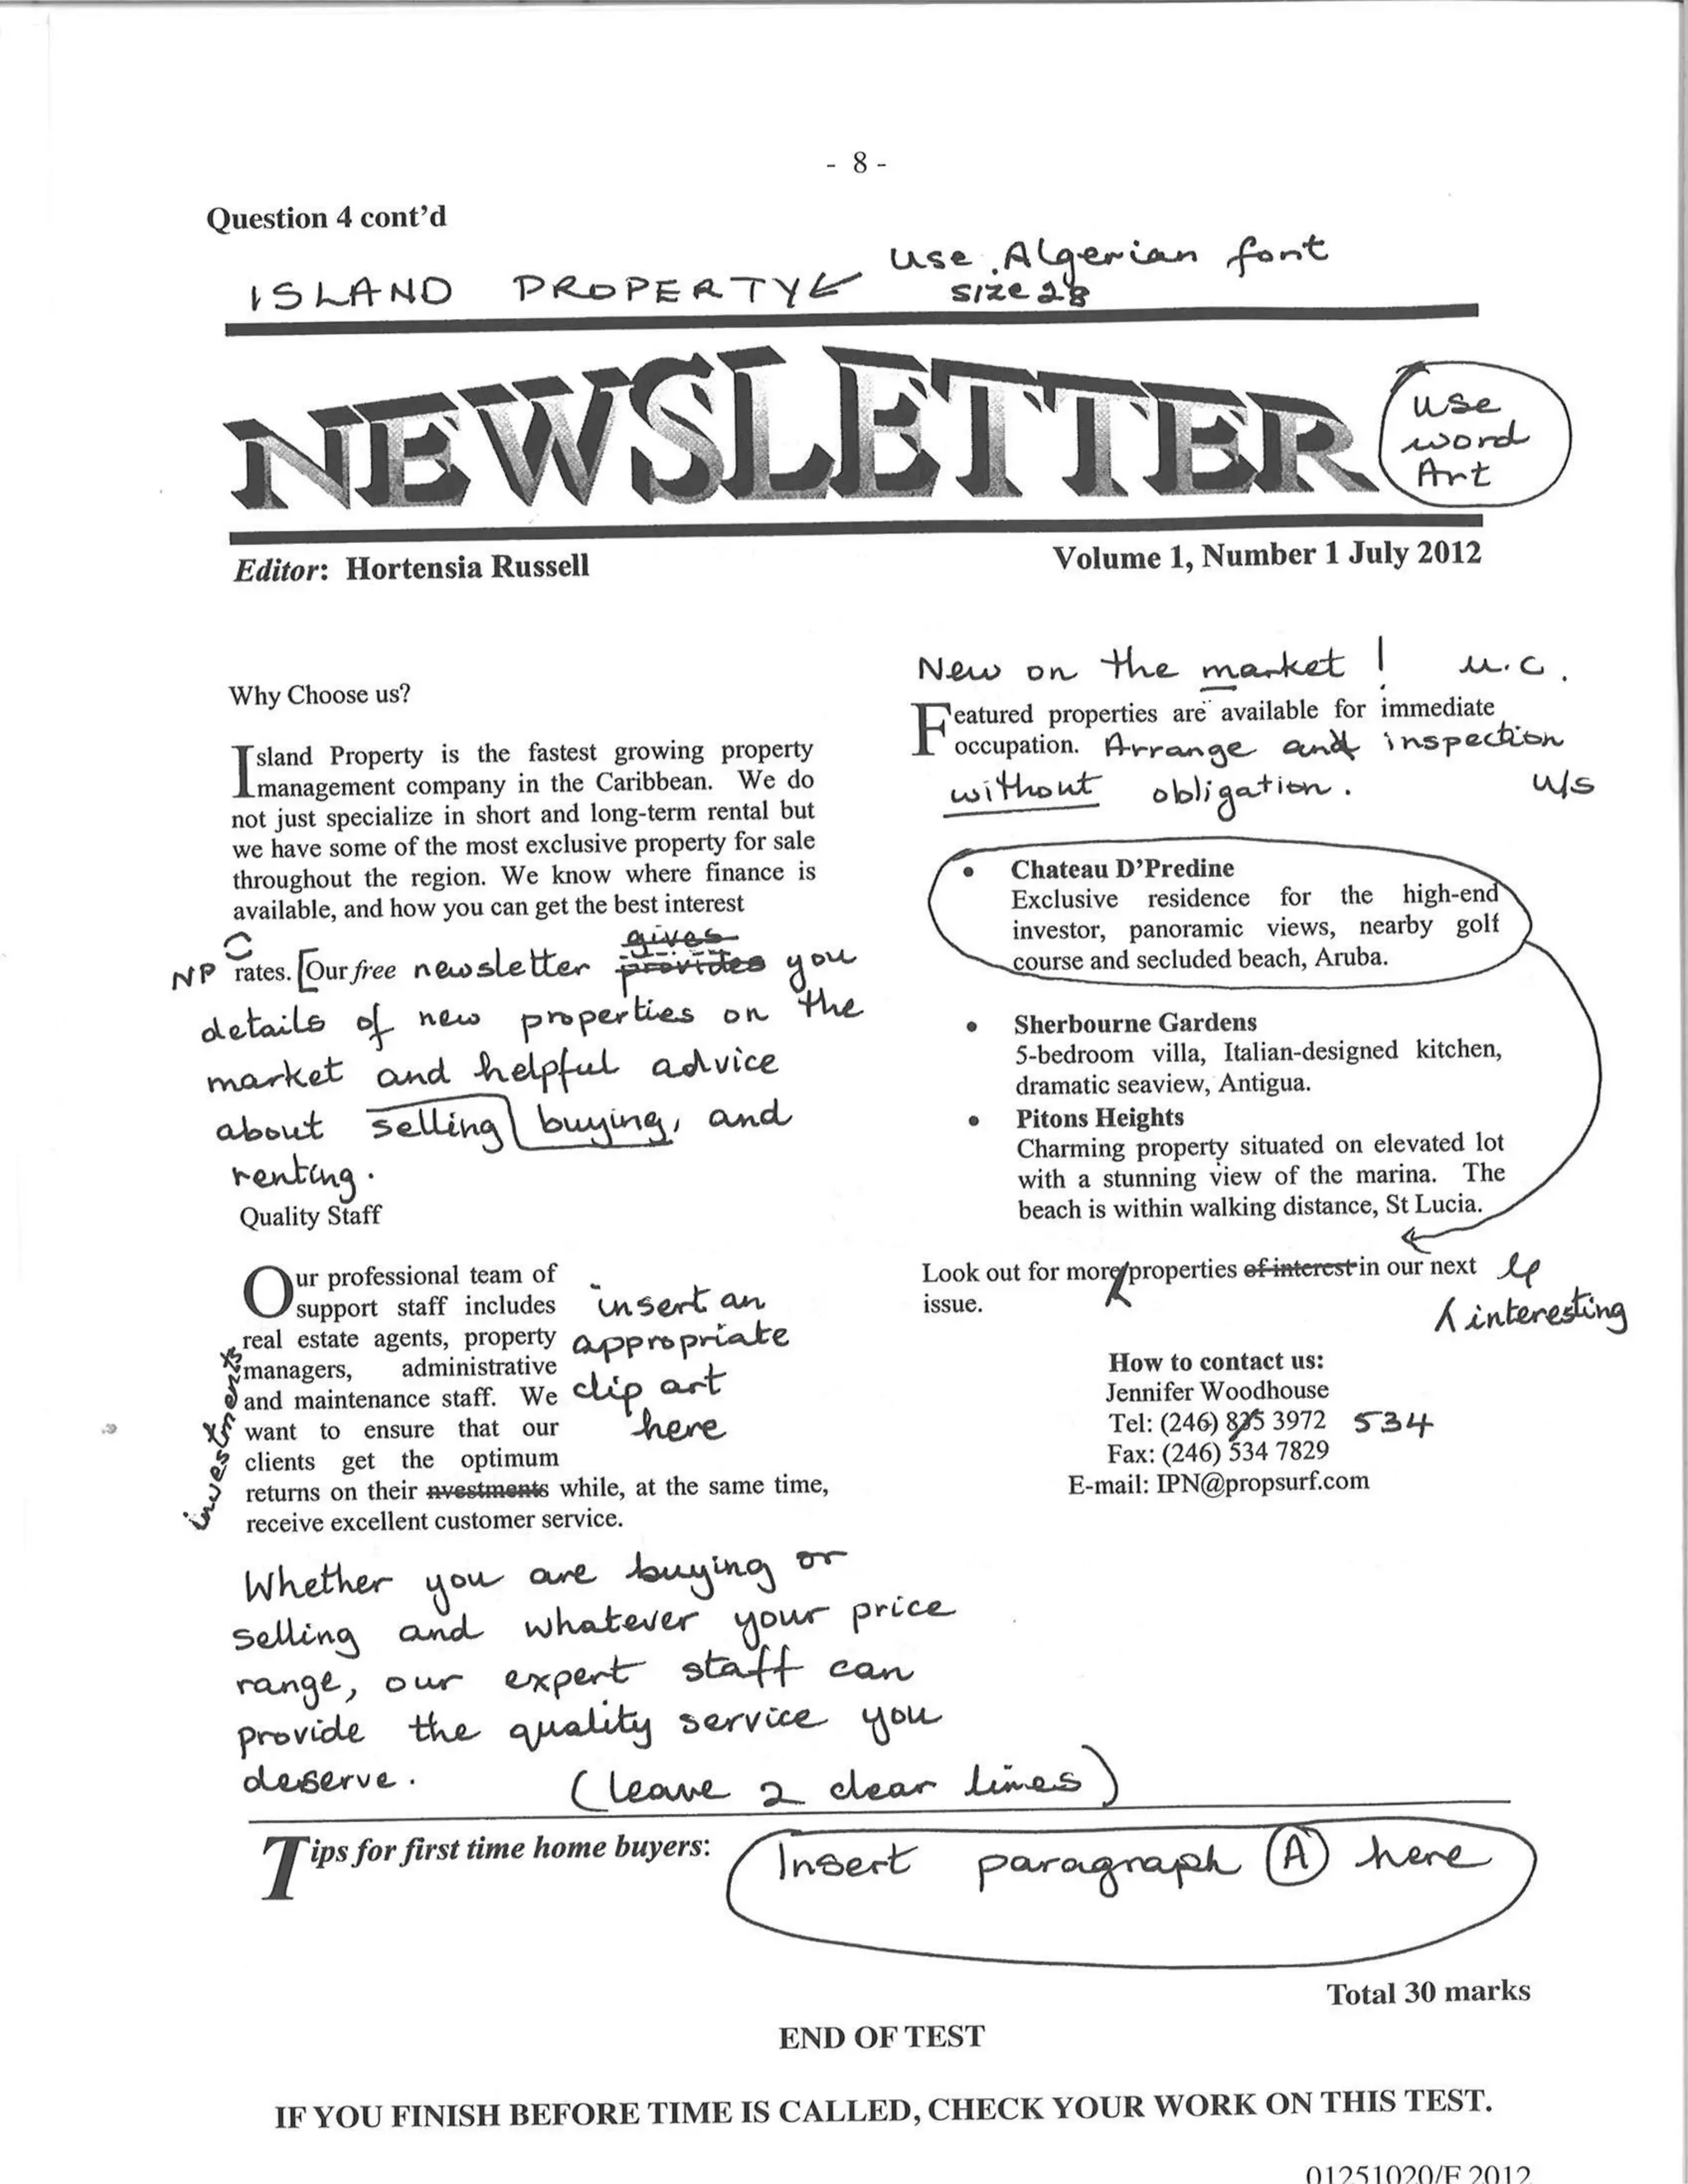 - 8 -
Question 4 cont'd
ISLAND PROPERTY use Algerian font
size 28
NEWSLETTER
use
word
Art
Editor: Hortensia Russell Volume 1, Number 1 July 2012
Why Choose us?
Island Property is the fastest growing property
management company in the Caribbean. We do
not just specialize in short and long-term rental but
we have some of the most exclusive property for sale
throughout the region. We know where finance is
available, and how you can get the best interest
gives
NP rates. [Our free newsletter provides you
details of new properties on the
market and helpful advice
about selling buying, and
renting.
Quality Staff
Our professional team of
support staff includes
real estate agents, property
managers, administrative
and maintenance staff. We
want to ensure that our
clients get the optimum
returns on their nvestments while, at the same time,
receive excellent customer service.
investments
insert an
appropriate
clip art
here
Whether you are buying or
selling and whatever your price
range, our expert staff can
provide the quality service you
deserve. (leave 2 clear lines)
New on the market! u.c.
Featured properties are available for immediate
occupation. Arrange and inspection
without obligation. u/s
• Chateau D'Predine
Exclusive residence for the high-end
investor, panoramic views, nearby golf
course and secluded beach, Aruba.
• Sherbourne Gardens
5-bedroom villa, Italian-designed kitchen,
dramatic seaview, Antigua.
• Pitons Heights
Charming property situated on elevated lot
with a stunning view of the marina. The
beach is within walking distance, St Lucia.
Look out for more properties of interest in our next
issue.
interesting
How to contact us:
Jennifer Woodhouse
Tel: (246) 835 3972 534
Fax: (246) 534 7829
E-mail: IPN@propsurf.com
Tips for first time home buyers: Insert paragraph A here
Total 30 marks
END OF TEST
IF YOU FINISH BEFORE TIME IS CALLED, CHECK YOUR WORK ON THIS TEST.
01251020/F 2012